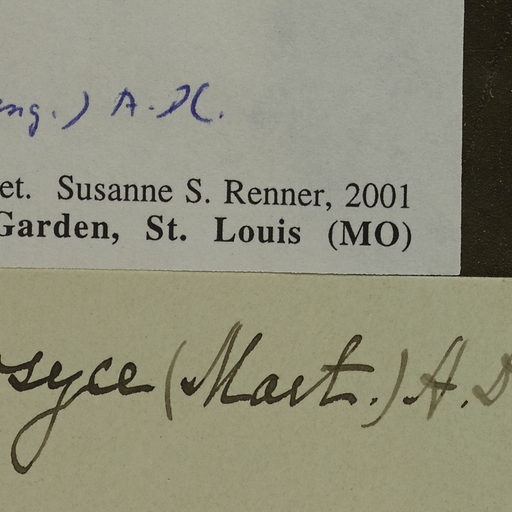 ng.) A. DC.
et. Susanne S. Renner, 2001
Garden, St. Louis (MO)
syce (Mart.) A. D